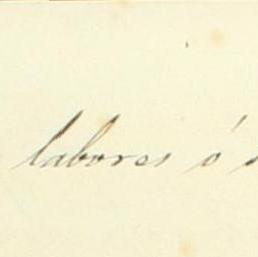 labores ó